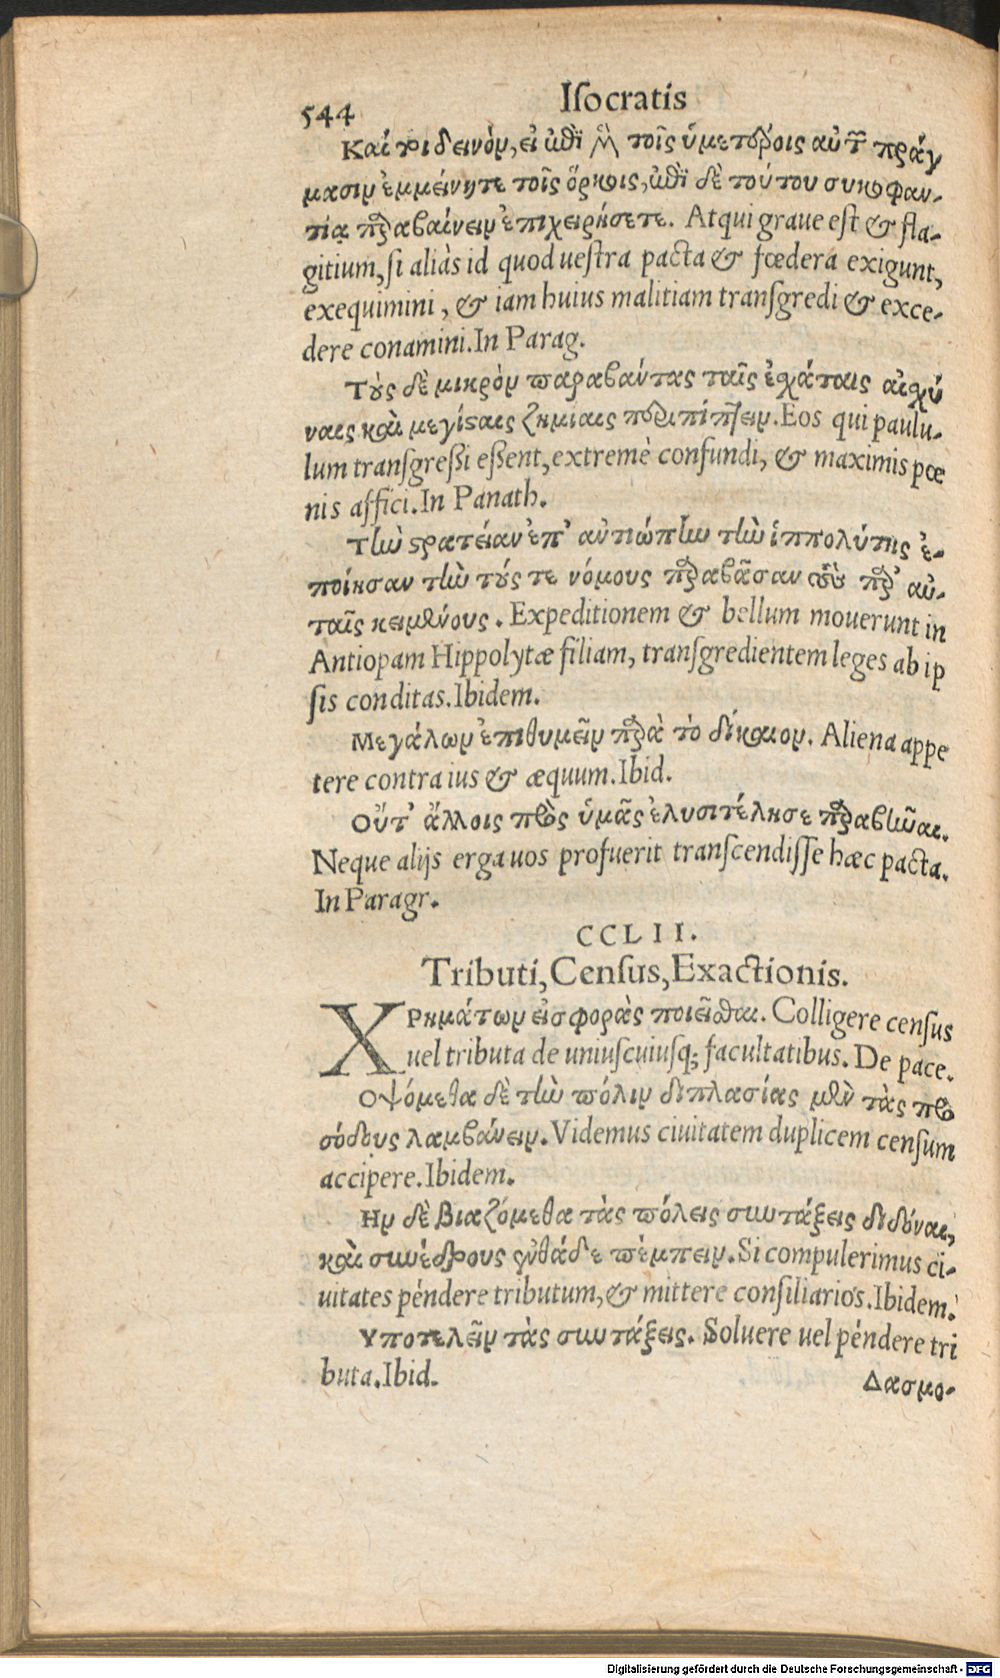 544 Iſocratis
Καίτοι δεινὸν, εἰ ἐπὶ μὲν τοῖς ὑμετέροις αὐτῶν πράγ
μασιν ἐμμείνητε τοῖς ὅρκοις, ἐπὶ δὲ τούτου συκοφαν-
τίᾳ παραβαίνειν ἐπιχειρήσετε. Atqui graue eſt & fla-
gitium, ſi aliàs id quod ueſtra pacta & fœdera exigunt,
exequimini, & iam huius malitiam tranſgredi & exce-
dere conamini. In Parag.
Τοὺς δὲ μικρὸν παραβάντας ταῖς ἐσχάταις αἰσχύ
ναις καὶ μεγίσταις ζημίαις περιπίπτειν. Eos qui paulu-
lum tranſgreſſi eſſent, extremè confundi, & maximis pœ
nis affici. In Panath.
Τὴν στρατείαν ἐπ' ἀντιόπην τὴν ἱππολύτης ἐ-
ποίησαν τὴν τούς τε νόμους παραβᾶσαν τοὺς παρ' αὐ-
ταῖς κειμένους. Expeditionem & bellum mouerunt in
Antiopam Hippolytæ filiam, tranſgredientem leges ab ip
ſis conditas. Ibidem.
Μεγάλων ἐπιθυμεῖν παρὰ τὸ δίκαιον. Aliena appe
tere contra ius & æquum. Ibid.
Οὔτ' ἄλλοις πρὸς ὑμᾶς ἐλυσιτέλησε παραβῆναι.
Neque alijs erga uos profuerit tranſcendiſſe hæc pacta.
In Paragr.
CCLII.
Tributi, Cenſus, Exactionis.
ΧΡημάτων εἰσφορὰς ποιεῖσθαι. Colligere cenſus
uel tributa de uniuſcuiuſq; facultatibus. De pace.
Οψόμεθα δὲ τὴν πόλιν διπλασίας μὲν τὰς προ
σόδους λαμβάνειν. Videmus ciuitatem duplicem cenſum
accipere. Ibidem.
Ην δὲ βιαζόμεθα τὰς πόλεις συντάξεις διδόναι,
καὶ συνέδρους ἐνθάδε πέμπειν. Si compulerimus ci-
uitates péndere tributum, & mittere conſiliarios. Ibidem.
Υποτελεῖν τὰς συντάξεις. Soluere uel péndere tri
buta. Ibid. Δασμο-
Digitalisierung gefördert durch die Deutsche Forschungsgemeinschaft - DFG